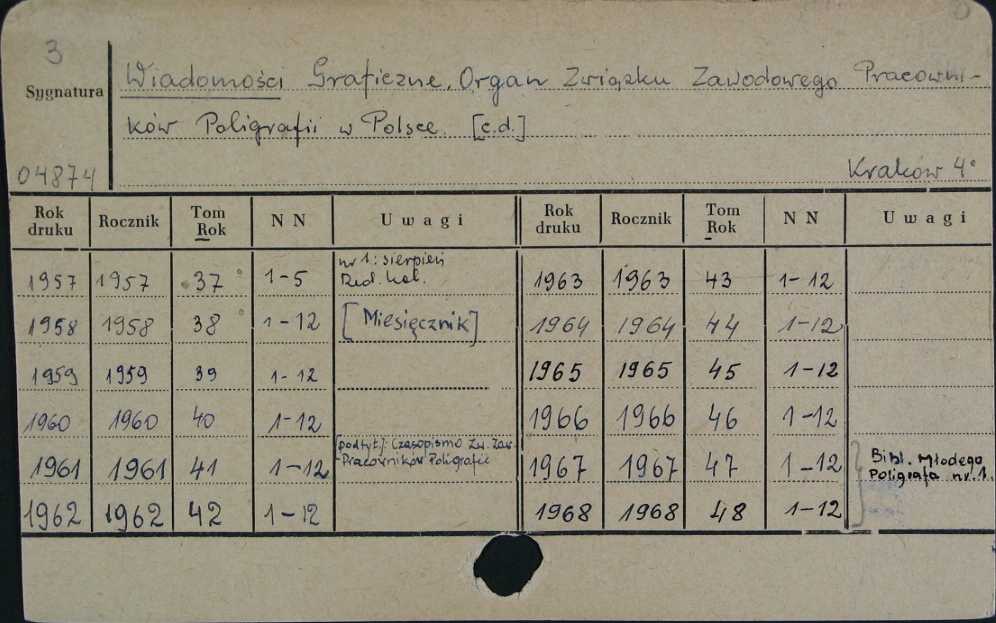 3
Sygnatura
04874
Wiadomości Graficzne. Organ Związku Zawodowego Pracowni-
ków Poligrafii w Polsce. [c.d.]
Kraków 4°
Rok druku Rocznik Tom Rok N N Uwagi Rok druku Rocznik Tom Rok N N Uwagi
1957 1957 37 1-5 nr 1: sierpień 1963 1963 43 1-12
1958 1958 38 1-12 [Miesięcznik] 1964 1964 44 1-12
1959 1959 39 1-12 1965 1965 45 1-12
1960 1960 40 1-12 1966 1966 46 1-12
1961 1961 41 1-12 [podtyt]: Czasopismo Zw. Zaw. Pracowników Poligrafii 1967 1967 47 1-12 Bibl. Młodego Poligrafa nr. 1.
1962 1962 42 1-12 1968 1968 48 1-12